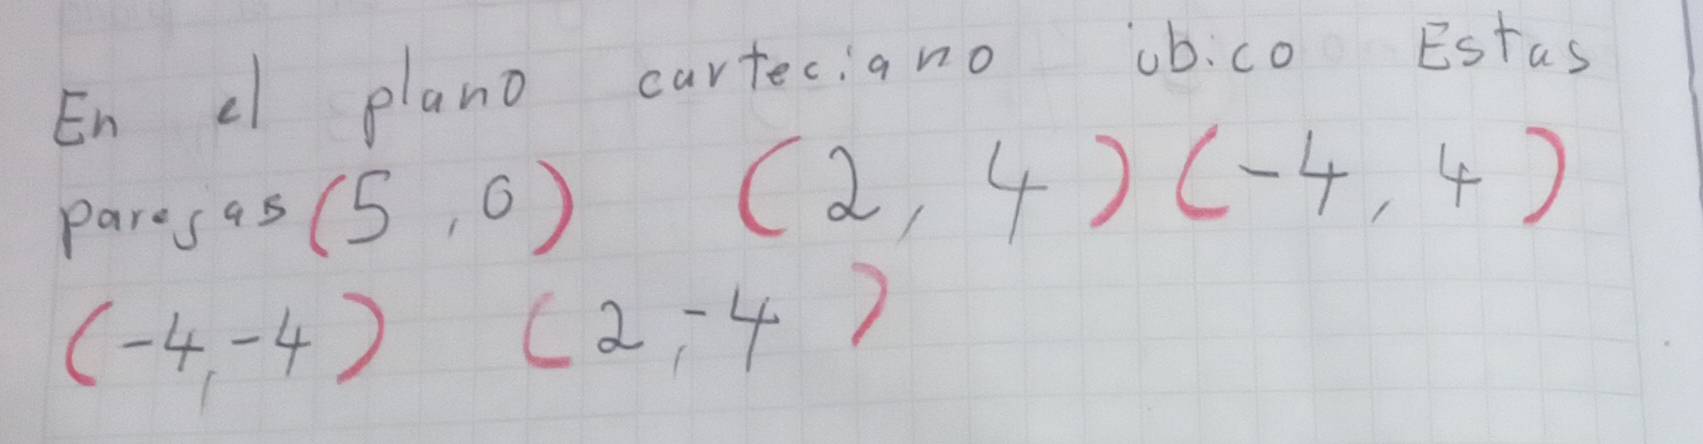 En el plano carteciano ubico Estas
parejas (5, 0) (2, 4) (-4, 4)
(-4, -4) (2, -4)